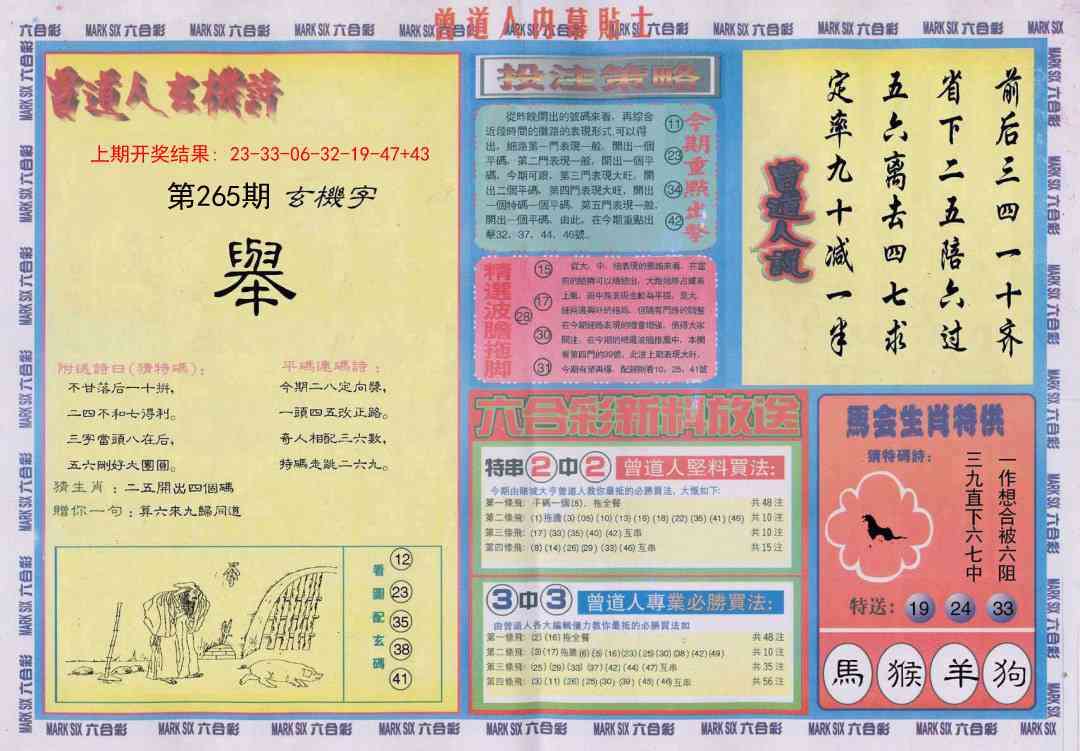 曾道人内幕貼士
六合彩 MARK SIX 六合彩 MARK SIX 六合彩 MARK SIX 六合彩 MARK SIX 六合彩 MARK SIX 六合彩 MARK SIX 六合彩 MARK SIX 六合彩 MARK SIX 六合彩 MARK SIX
曾道人玄機詩
上期开奖结果: 23-33-06-32-19-47+43
第265期 玄機字
舉
附送詩曰(猜特碼):
不甘落后一十拚,
二四不和七得利。
三字當頭八在后,
五六剛好大團圓。
平碼連碼詩:
今期二八定向奬,
一頭四五改正路。
奇人相配三六數,
特碼走跳二六九。
猜生肖: 二五開出四個碼
贈你一句: 算六來九歸同道
看圖配玄碼
12
23
35
38
41
投注策略
從昨晚開出的號碼來看, 再綜合
近段時間的攤路的表現形式, 可以得
出, 細路第一門表現一般, 開出一個
平碼, 第二門表現一般, 開出一個平
碼, 今期可跟, 第三門表現大旺, 開
出二個平碼, 第四門表現大旺, 開出
一個特碼一個平碼, 第五門表現一般,
開出一個平碼, 由此, 在今期重點出
擊32、37、44、46號。
11
23
34
42
今期重點出擊
精選波膽拖脚
15
17
28
30
31
今期有望再爆, 配襯則看10、25、41號
六合彩新料放送
特串2中2 曾道人堅料買法:
今期由賭城大亨曾道人教你最抵的必勝買法, 大慨如下:
第一條飛: 平碼一個(5), 拖全餐 共48注
第二條飛: (1)拖膽(3)(05)(10)(13)(16)(18)(22)(35)(41)(46) 共10注
第三條飛: (17)(33)(35)(40)(42)互串 共10注
第四條飛: (8)(14)(26)(29)(33)(46)互串 共15注
3中3 曾道人專業必勝買法:
由曾道人各大編輯傾力教你最抵的必勝買法如
第一條飛: (2)(16)拖全餐 共48注
第二條飛: (3)(17)拖膽(6)(8)(16)(23)(29)(30)(38)(42)(49) 共10注
第三條飛: (25)(29)(33)(37)(42)(44)(47)互串 共35注
第四條飛: (3)(11)(26)(25)(30)(39)(45)(46)互串 共56注
前后三四一十齐
省下二五陪六过
五六离去四七求
定率九十减一半
曾道人說
馬会生肖特供
猜特碼詩:
一作想合被六阻
三九直下六七中
特送: 19 24 33
馬 猴 羊 狗
MARK SIX 六合彩 MARK SIX 六合彩 MARK SIX 六合彩 MARK SIX 六合彩 MARK SIX 六合彩 MARK SIX 六合彩 MARK SIX 六合彩 MARK SIX 六合彩 MARK SIX 六合彩 MARK SIX